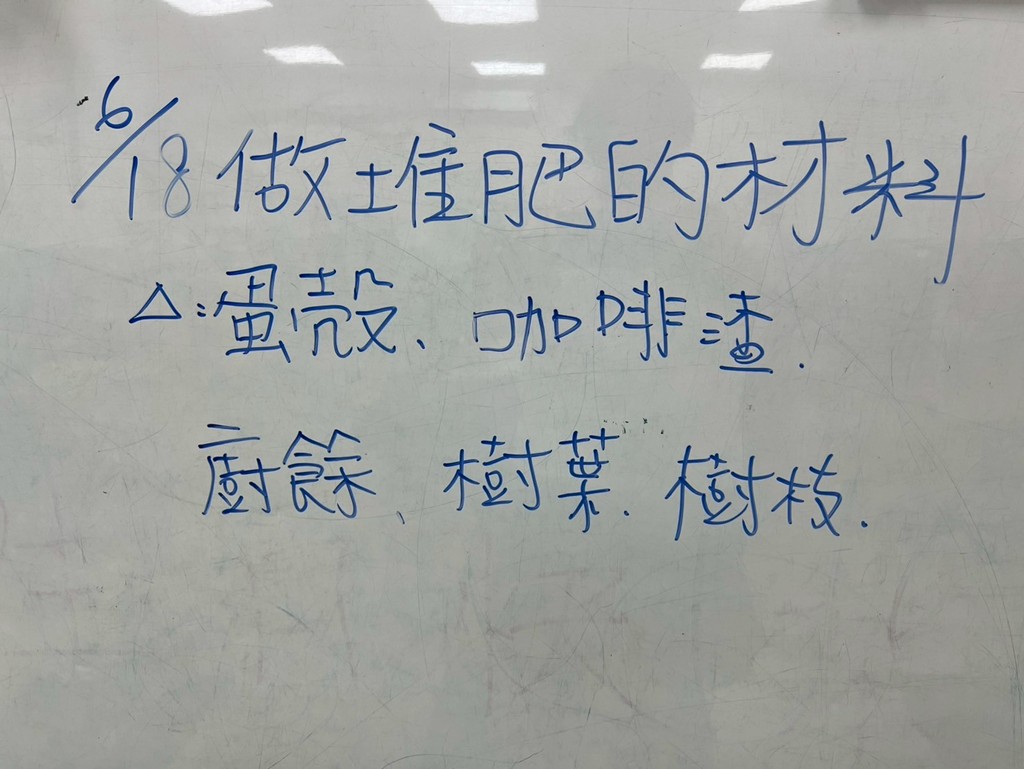 6/18做堆肥的材料
△:蛋殼、咖啡渣.
廚餘、樹葉.樹枝.